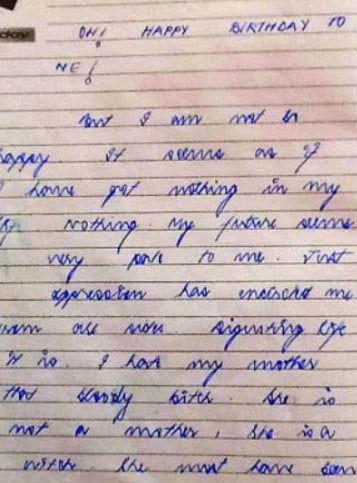 day
OH! HAPPY BIRTHDAY TO
ME!
But I am not
happy. It seems as if
I have got nothing in my
Nothing. My future seems
very to me. Just
depression has encircled me
from all sides. Disgusting life
it is. I hate my mother
that bloody bitch. She is
not a mother, she is a
witch. She must have been